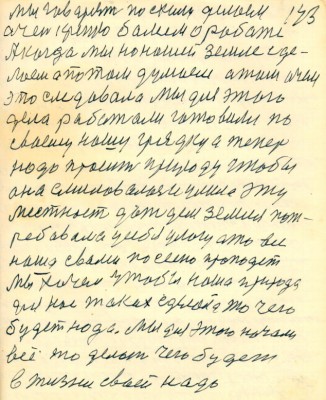 мы говарим поскили делаем 173
а чем крепко балием о работе
А когда мы но нашей земле сде-
лаем а потом думаем а том о чем
это следовала Мы для этого
дела работали готовили по
своему нашу грядку а тепер
надо просит природу чтобы
она смиловалася и умие эту
местност дождем земля пот-
ребавала у себя улогу ато все
наша свами посеено пропадет
Мы хочем чтобы наша природа
для нас таках сделала то чего
будет нада. Мы для этого начали
всё то делат чего будет
в жизни своей надо